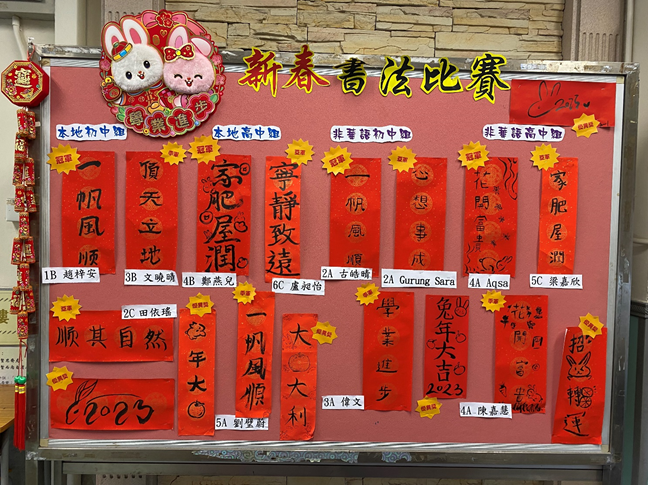 新春書法比賽
學業進步
2023
本地初中組
本地高中組
非華語初中組
非華語高中組
冠軍
一帆風順
1B 趙梓安
亞軍
頂天立地
3B 文曉晴
冠軍
家肥屋潤
4B 鄭燕兒
亞軍
寧靜致遠
6C 盧昶怡
冠軍
一帆風順
2A 古皓晴
亞軍
心想事成
2A Gurung Sara
冠軍
花開富貴
4A Aqsa
亞軍
家肥屋潤
5C 梁嘉欣
季軍
順其自然
2C 田依瑤
優異獎
2023
優異獎
年大
季軍
一帆風順
5A 劉壁蔚
優異獎
大大利
季軍
學業進步
3A 偉文
兔年大吉
2023
優異獎
季軍
花開富貴
4A 陳嘉慧
優異獎
招轉運
優異獎